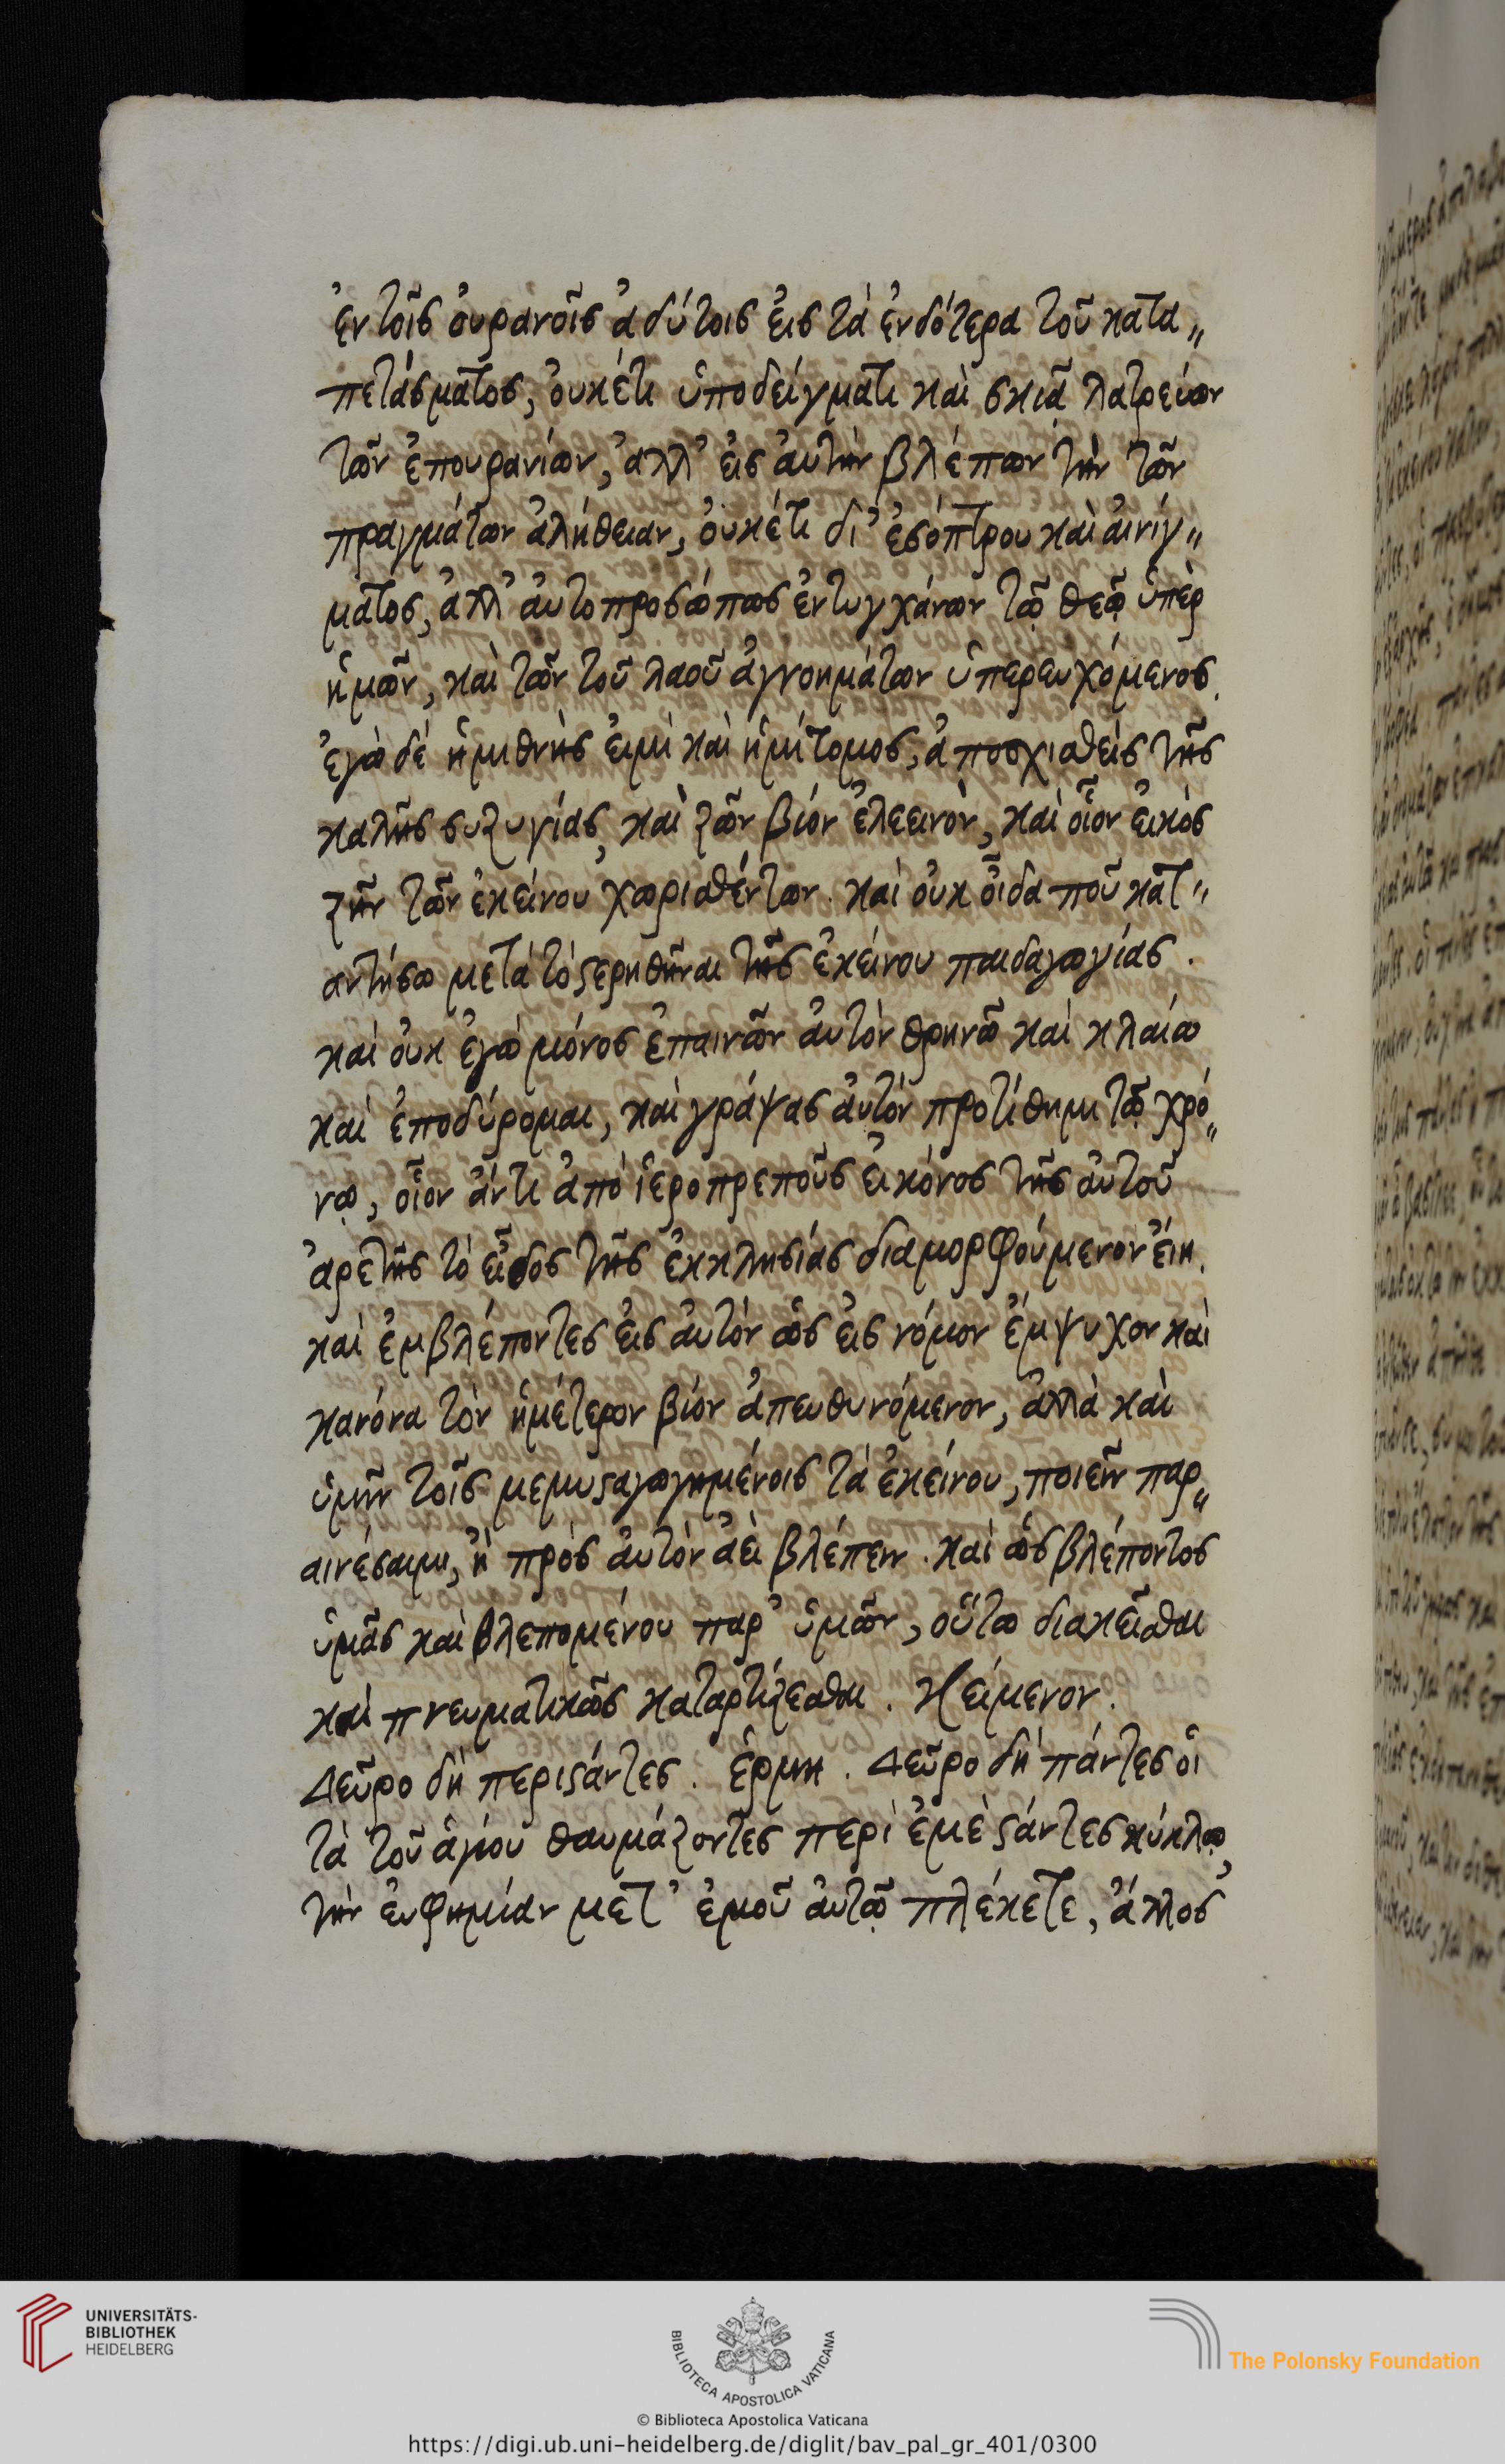 ἐν τοῖς οὐρανοῖς ἀδύτοις εἰς τὰ ἐνδότερα τοῦ κατα〃
πετάσματος, οὐκέτι ὑποδείγματι καὶ σκιᾷ λατρεύων
τῶν ἐπουρανίων, ἀλλ' εἰς αὐτὴν βλέπων τὴν τῶν
πραγμάτων ἀλήθειαν, οὐκέτι δι' ἐσόπτρου καὶ αἰνίγ〃
ματος, ἀλλ' αὐτοπροσώπως ἐντυγχάνων τῷ θεῷ ὑπὲρ
ἡμῶν, καὶ τῶν τοῦ λαοῦ ἀγνοημάτων ὑπερευχόμενος.
ἐγὼ δὲ ἡμιθνής εἰμι καὶ ἡμίτομος, ἀποσχισθεὶς τῆς
καλῆς συζυγίας, καὶ ζῶν βίον ἐλεεινόν, καὶ οἷον εἰκὸς
ζῆν τῶν ἐκείνου χωρισθέντων. καὶ οὐκ οἶδα ποῦ κατ〃
αντήσω μετὰ τὸ στερηθῆναι τῆς ἐκείνου παιδαγωγίας.
καὶ οὐκ ἐγὼ μόνος ἐπαινῶν αὐτὸν θρηνῶ καὶ κλαίω
καὶ ἐποδύρομαι, καὶ γράψας αὐτὸν προτίθημι τῷ χρό〃
νῳ, οἷον ἄντι ἀπὸ ἱεροπρεποῦς εἰκόνος τῆς αὐτοῦ
ἀρετῆς τὸ εἶδος τῆς ἐκκλησίας διαμορφούμενον εἴη.
καὶ ἐμβλέποντες εἰς αὐτὸν ὡς εἰς νόμον ἔμψυχον καὶ
κανόνα τὸν ἡμέτερον βίον ἀπευθυνόμενον, ἀλλὰ καὶ
ὑμῖν τοῖς μεμυσταγωγημένοις τὰ ἐκείνου, ποιεῖν παρ〃
αινέσαιμι, ἢ πρὸς αὐτὸν ἀεὶ βλέπειν. καὶ ὡς βλέποντος
ὑμᾶς καὶ βλεπομένου παρ' ὑμῶν, οὕτω διακεῖσθαι
καὶ πνευματικῶς καταρτίζεσθαι. Κείμενον.
Δεῦρο δὴ περιστάντες. ἑρμη. Δεῦρο δὴ πάντες οἱ
τὰ τοῦ ἁγίου θαυμάζοντες περὶ ἐμὲ στάντες κύκλῳ,
τὴν εὐφημίαν μετ' ἐμοῦ αὐτῷ πλέκετε, ἄλλος
UNIVERSITÄTS-
BIBLIOTHEK
HEIDELBERG
BIBLIOTECA APOSTOLICA VATICANA
The Polonsky Foundation
© Biblioteca Apostolica Vaticana
https://digi.ub.uni-heidelberg.de/diglit/bav_pal_gr_401/0300